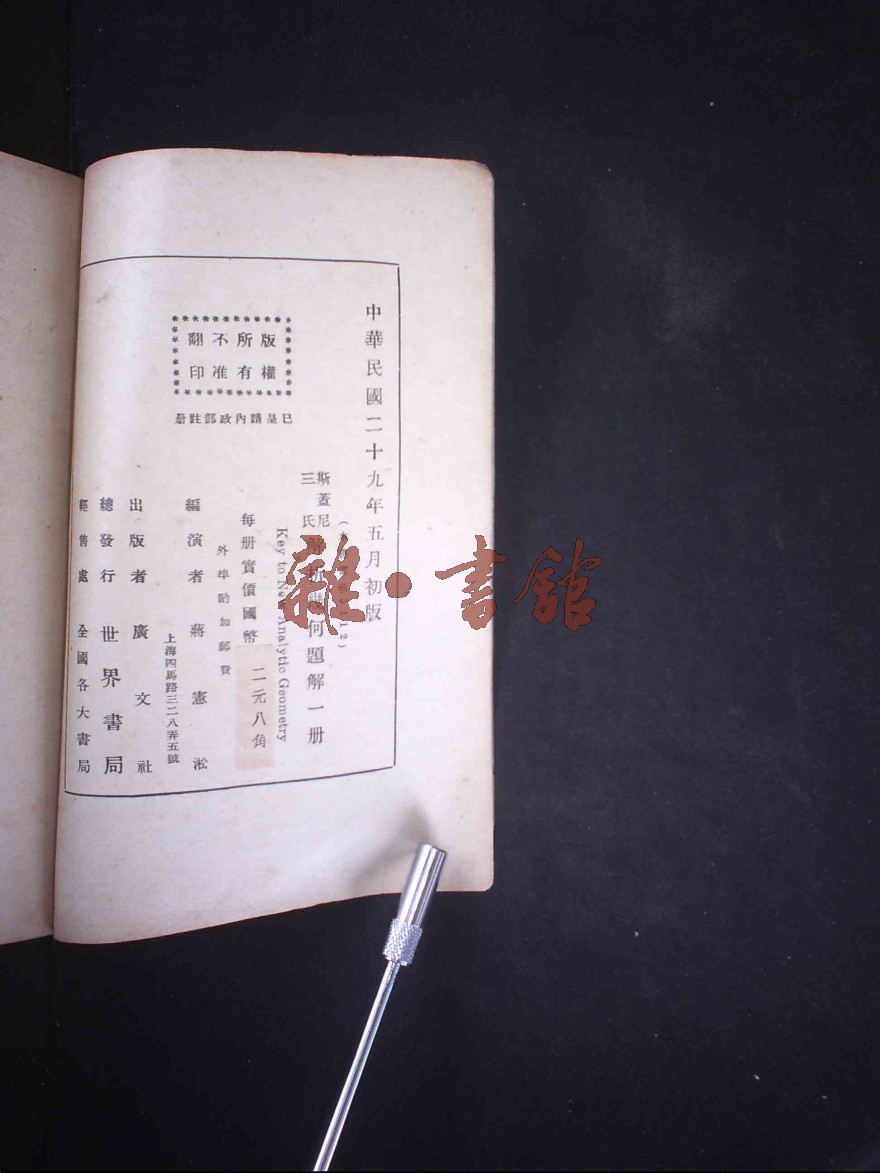 中華民國二十九年五月初版
斯蓋尼三氏解析幾何題解一册
Key to New Analytic Geometry
每册實價國幣二元八角
外埠酌加郵費
版權所有不准翻印
已呈請內政部註册
編演者蔣憲淞
上海四馬路三二八弄五號
出版者廣文社
總發行世界書局
經售處全國各大書局
雜·書館